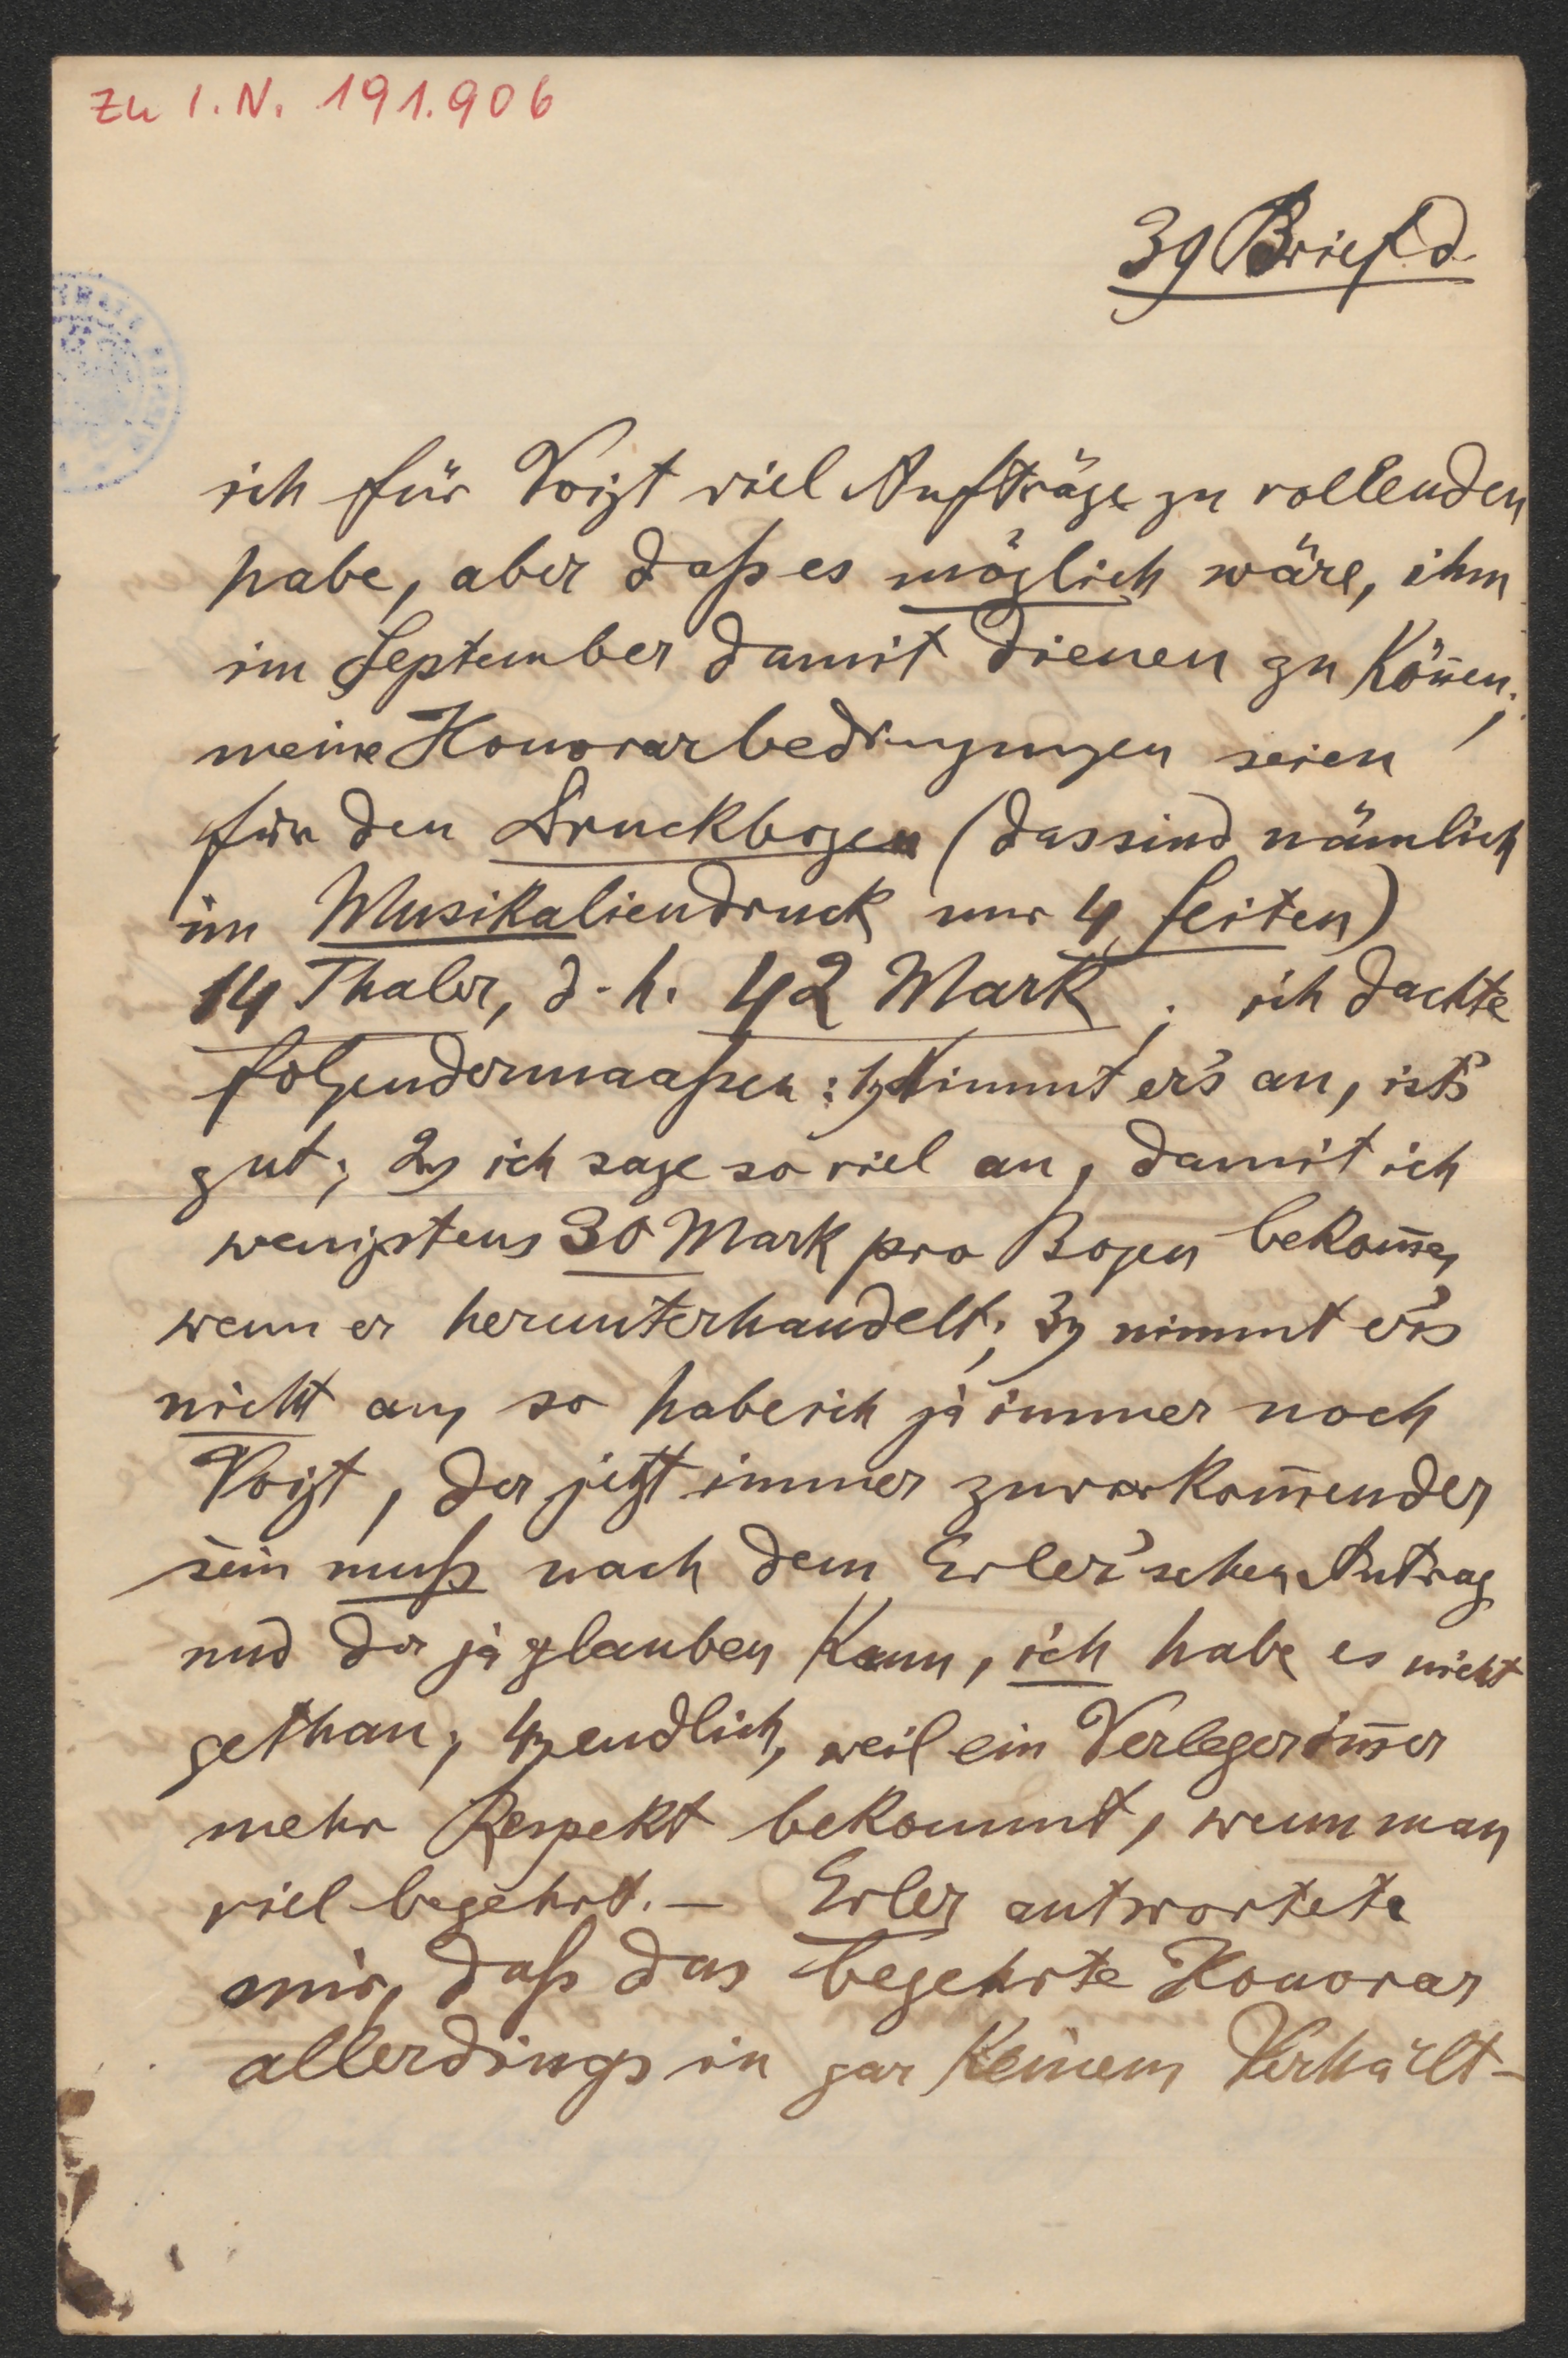 zu I.N. 191.906
39 Brief d.
ich für Voigt viel Aufträge zu vollenden
habe, aber daß es möglich wäre, ihm
im September damit dienen zu köñen;
meine Honorarbedingungen seien
für den Druckbogen (das sind nämlich
im Musikaliendruck nur 4 Seiten)
14 Thaler, d. h. 42 Mark; ich dachte
folgendermaaßen: 1) Nimmt er's an, ist's
gut; 2) ich sage so viel an, damit ich
wenigstens 30 Mark pro Bogen bekom̄e,
wenn er herunterhandelt; 3) nimmt er's
nicht an, so habe ich ja immer noch
Voigt, der jetzt immer zuvorkom̄ender
sein muß nach dem Erler'schen Antrag
und der ja glauben kann, ich habe es nicht
gethan; 4) endlich, weil ein Verleger im̄er
mehr Respekt bekommt, wenn man
viel begehrt. — Erler antwortete
mir, daß das begehrte Honorar
allerdings in gar keinem Verhält-